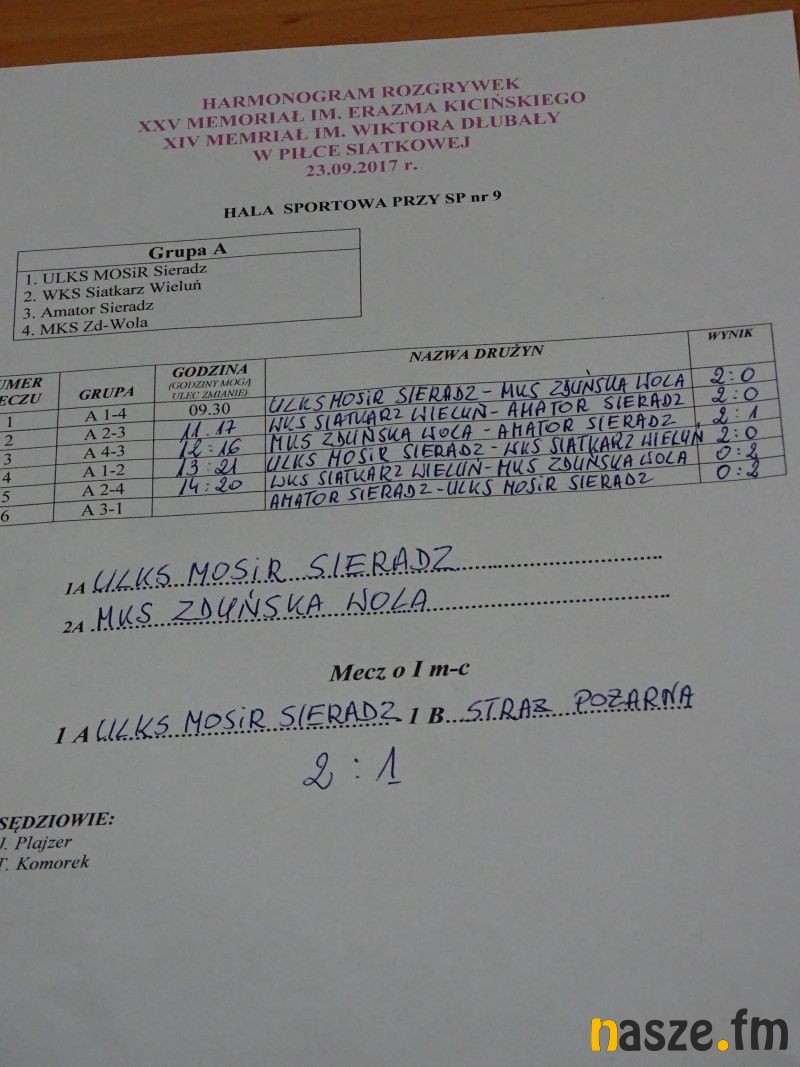 HARMONOGRAM ROZGRYWEK
XXV MEMORIAŁ IM. ERAZMA KICIŃSKIEGO
XIV MEMRIAŁ IM. WIKTORA DŁUBAŁY
W PIŁCE SIATKOWEJ
23.09.2017 r.
HALA SPORTOWA PRZY SP nr 9
Grupa A
1. ULKS MOSiR Sieradz
2. WKS Siatkarz Wieluń
3. Amator Sieradz
4. MKS Zd-Wola
UMER ECZU GRUPA GODZINA (GODZINY MOGĄ ULEC ZMIANIE) NAZWA DRUŻYN WYNIK
1 A 1-4 09.30 ULKS MOSiR SIERADZ - MKS ZDUŃSKA WOLA 2:0
2 A 2-3 11.17 WKS SIATKARZ WIELUŃ - AMATOR SIERADZ 2:0
3 A 4-3 12:16 MKS ZDUŃSKA WOLA - AMATOR SIERADZ 2:1
4 A 1-2 13:21 ULKS MOSiR SIERADZ - WKS SIATKARZ WIELUŃ 2:0
5 A 2-4 14:20 WKS SIATKARZ WIELUŃ - MKS ZDUŃSKA WOLA 0:2
6 A 3-1 AMATOR SIERADZ - ULKS MOSiR SIERADZ 0:2
1A ULKS MOSiR SIERADZ
2A MKS ZDUŃSKA WOLA
Mecz o I m-c
1 A ULKS MOSiR SIERADZ 1 B STRAŻ POŻARNA
2 : 1
SĘDZIOWIE:
J. Plajzer
T. Komorek
nasze.fm